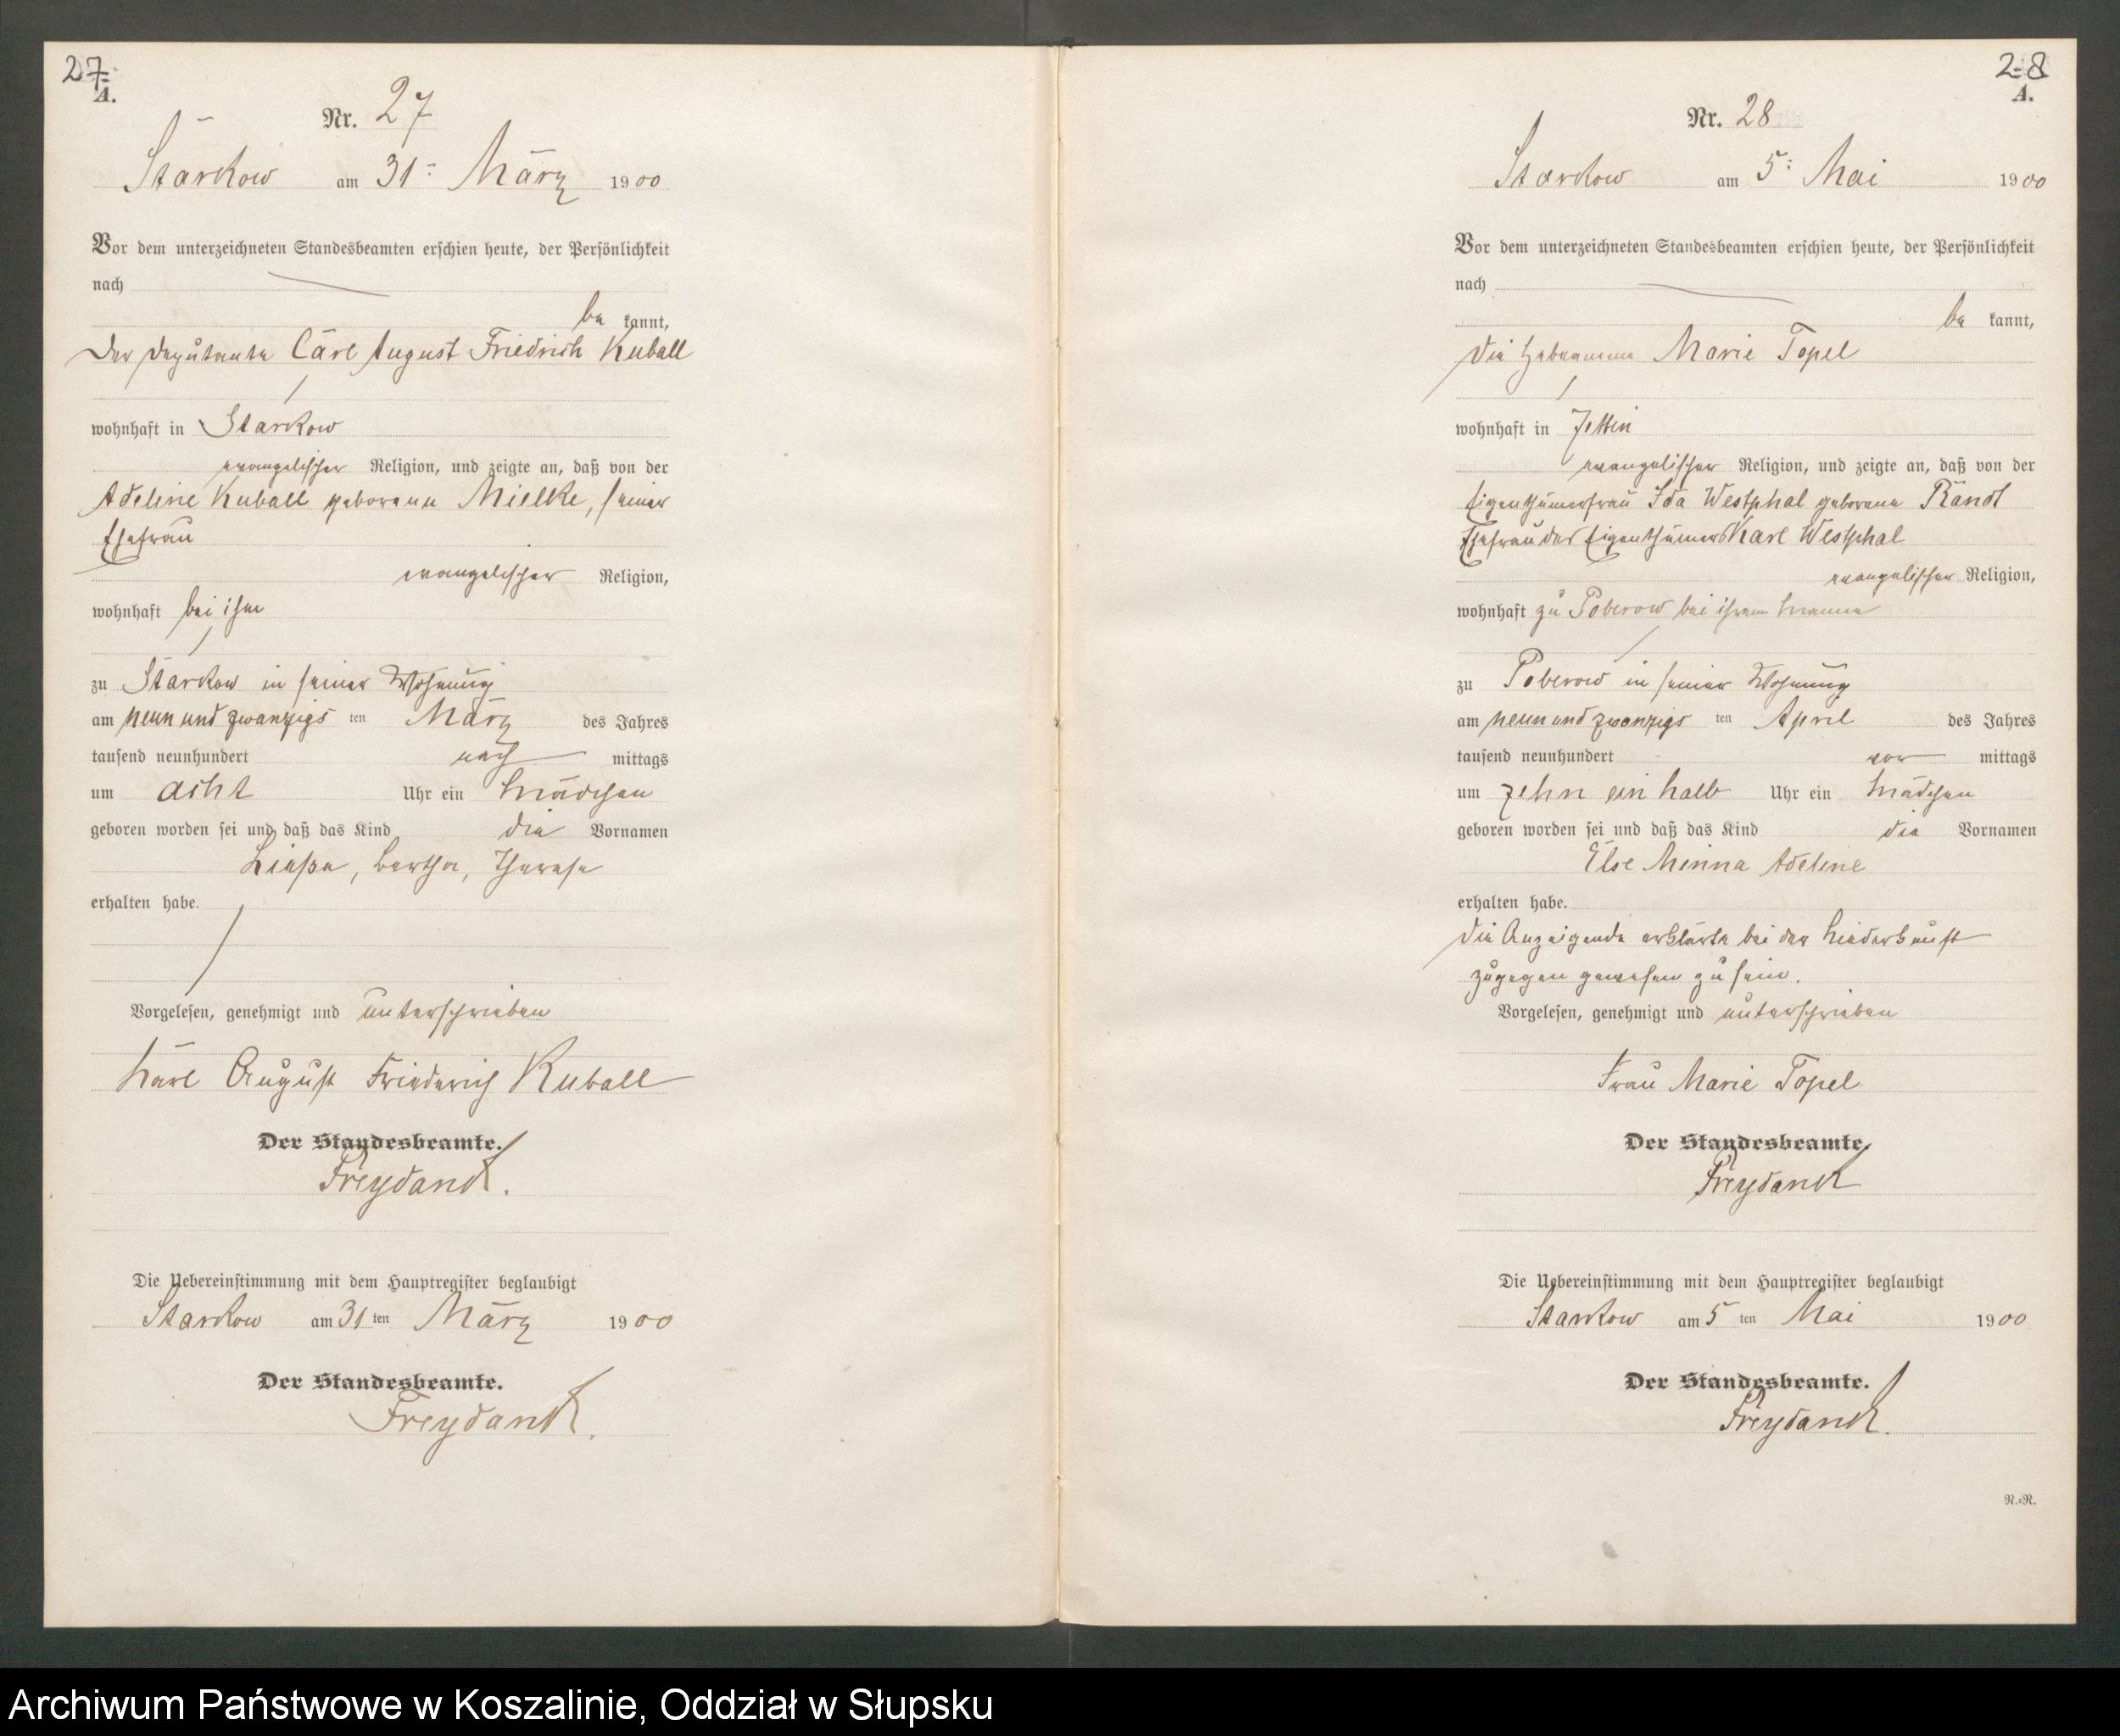 27.
A.
Nr. 27
Starkow am 31ᵗ März 1900
Vor dem unterzeichneten Standesbeamten erschien heute, der Persönlichkeit
nach
be kannt,
Der Deputante Carl August Friedrich Kuball
wohnhaft in Starkow
evangelischer Religion, und zeigte an, daß von der
Adeline Kuball geborene Mielke, seiner
Ehefrau
evangelischer Religion,
wohnhaft bei ihm
zu Starkow in seiner Wohnung
am neun und zwanzigs ten März des Jahres
tausend neunhundert nach mittags
um acht Uhr ein Mädchen
geboren worden sei und daß das Kind die Vornamen
Bertha, Therese
erhalten habe.
Vorgelesen, genehmigt und unterschrieben
Karl August Friederich Kuball
Der Standesbeamte.
Freydank.
Die Uebereinstimmung mit dem Hauptregister beglaubigt
Starkow am 31 ten März 1900
Der Standesbeamte.
Freydank.
28
A.
Nr. 28
Starkow am 5ᵗ Mai 1900
Vor dem unterzeichneten Standesbeamten erschien heute, der Persönlichkeit
nach
be kannt,
die Hebeamme Marie Topel
wohnhaft in Jettin
evangelischer Religion, und zeigte an, daß von der
Eigenthümerfrau Ida Westphal geborene Randt
Ehefrau des Eigenthümers Karl Westphal
evangelischer Religion,
wohnhaft zu Poberow bei ihrem Manne
zu Poberow in seiner Wohnung
am neun und zwanzigs ten April des Jahres
tausend neunhundert vor mittags
um zehn ein halb Uhr ein Mädchen
geboren worden sei und daß das Kind die Vornamen
Else Minna Adeline
erhalten habe.
Die Anzeigende erklärte bei der Niederkunft
zugegen gewesen zu sein.
Vorgelesen, genehmigt und unterschrieben
Frau Marie Topel
Der Standesbeamte
Freydank
Die Uebereinstimmung mit dem Hauptregister beglaubigt
Starkow am 5 ten Mai 1900
Der Standesbeamte.
Freydank.
N.-R.
Archiwum Państwowe w Koszalinie, Oddział w Słupsku